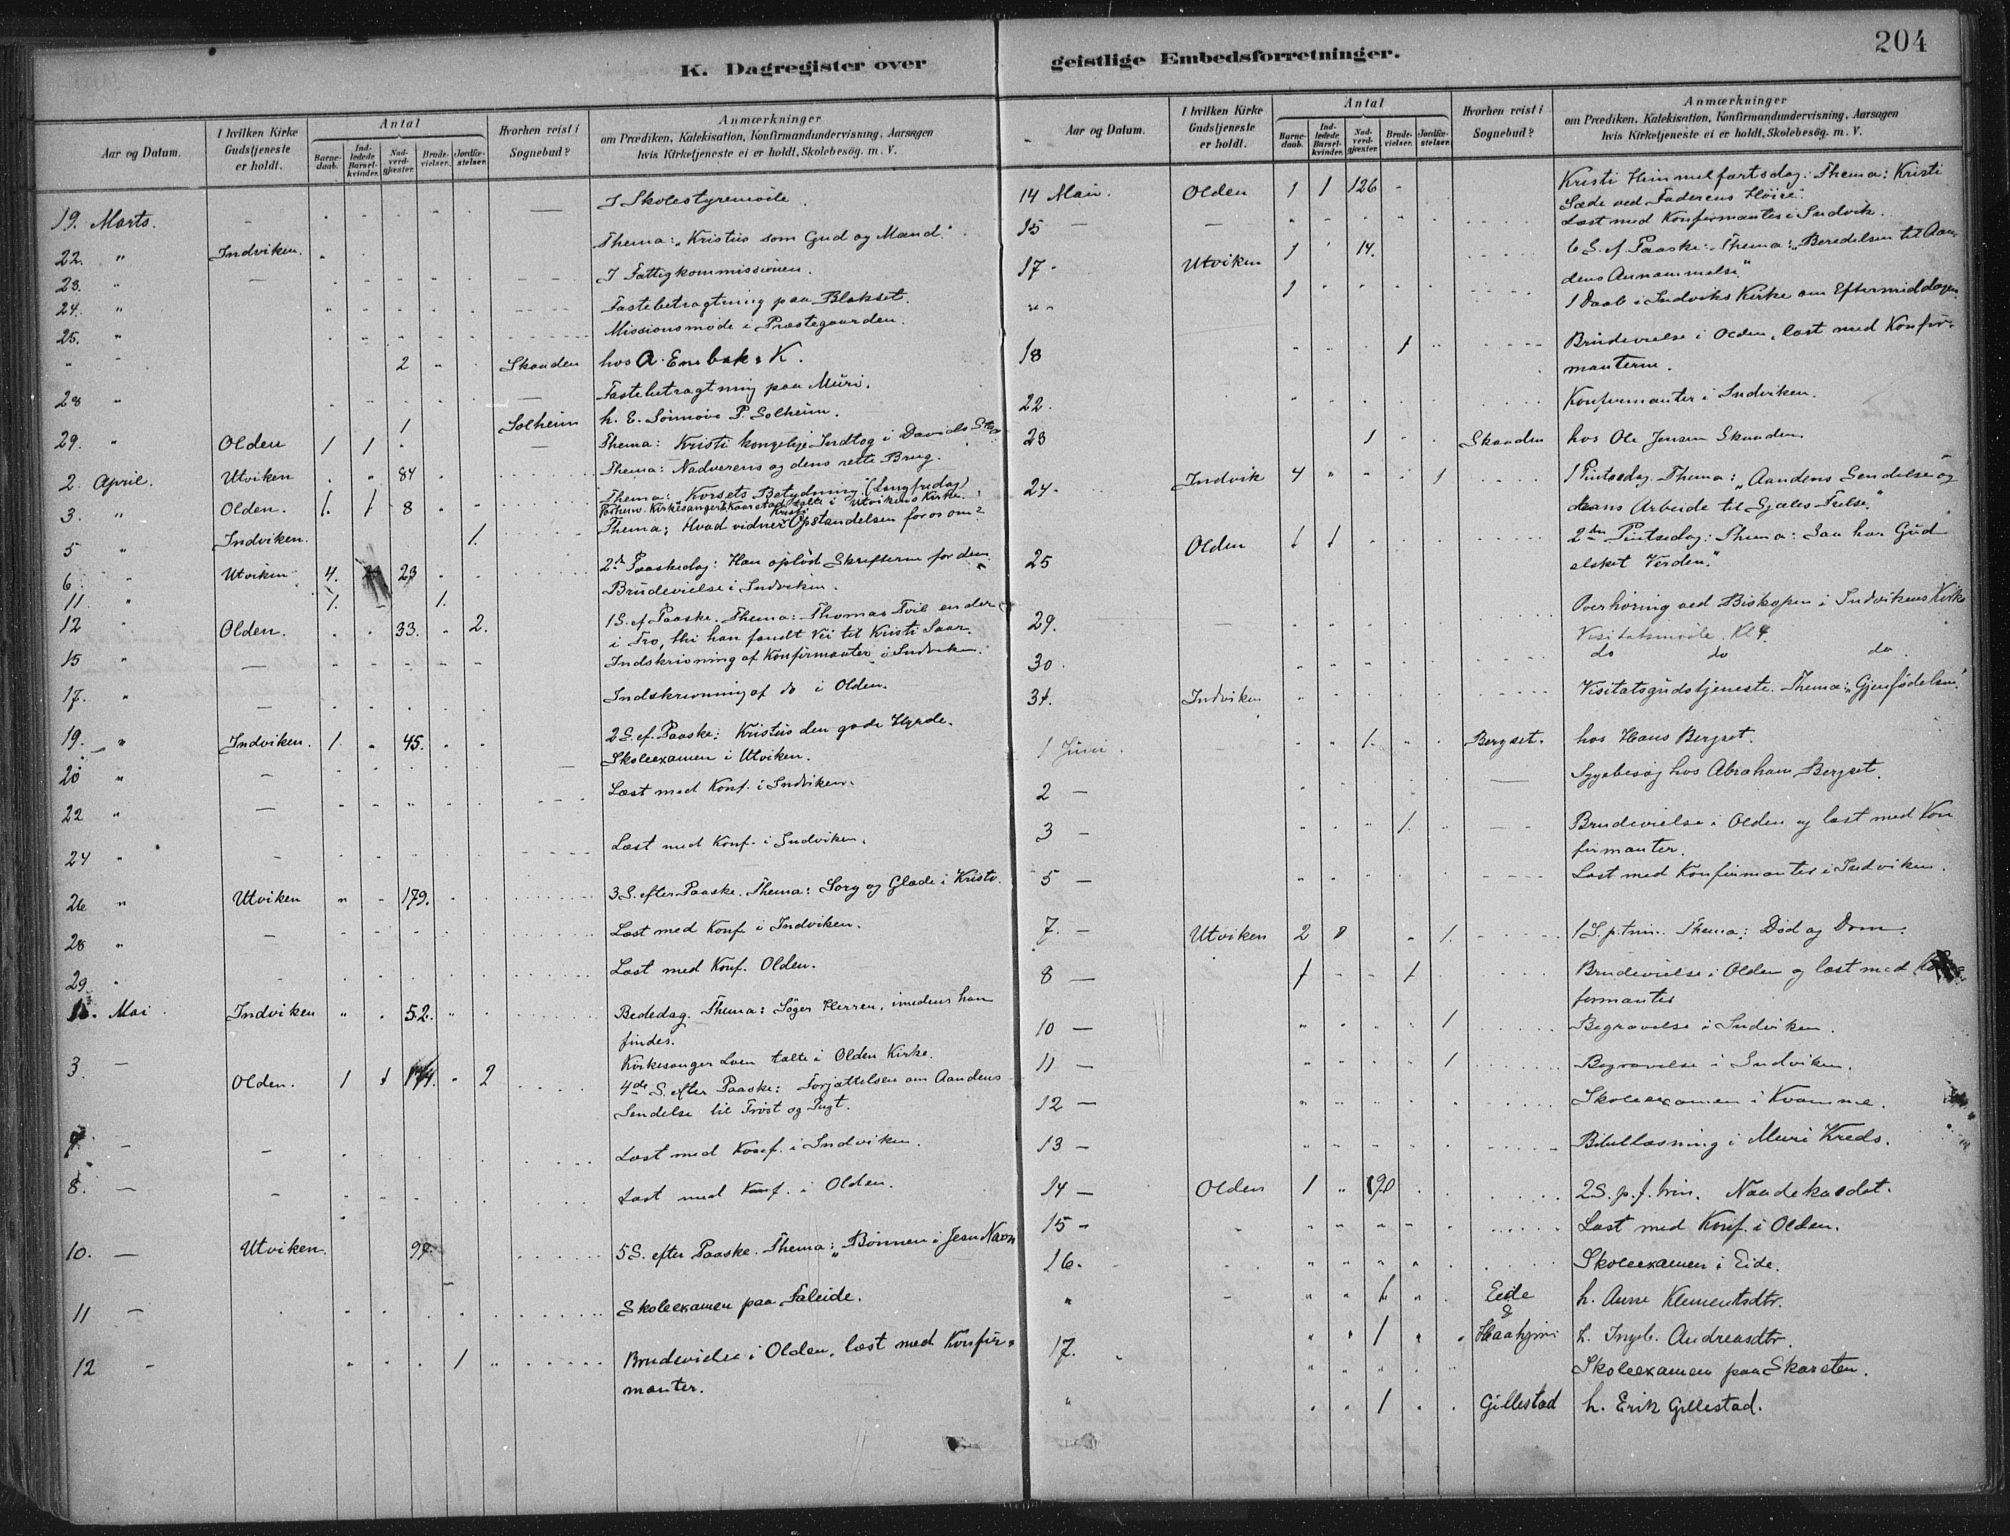 204
K. Dagregister over geistlige Embedsforretninger.
Aar og Datum.
I hvilken Kirke Gudstjeneste er holdt.
Antal
Barnedaab.
Indledede Barselkvinder.
Nadverdgjæster.
Brudevielser.
Jordfæstelser.
Hvorhen reist i Sognebud?
Anmærkninger
om Prædiken, Katekisation, Konfirmandundervisning, Aarsagen
hvis Kirketjeneste ei er holdt, Skolebesøg. m. V.
19. Marts. I Skolestyremøde.
22. " Indviken. Thema: "Kristus som Gud og Mand."
23. " — I Fattigkommissionen.
24. " Fastebetragtning paa Blakset.
25. " Missionsmøde i Præstegaarden.
" " 2 " Skaaden hos A. Enebak K.
28 " Fastebetragtning paa Muri.
1 Solheim h. E. Sørinove P. Solheim.
29. " Olden 1 1 — Thema: Kristi kongelige Indtog i Davids
2. April. Utviken " 84 Thema: Nadverens og dens rette Brug.
3. " Olden. 1. 1 8 Thema: Korsets Betydning (Langfredag)
Kirkesanger Kaarstad talte i Utvikens Kirke.
5 " Indviken. 1. Thema: Hvad vidner Kristi Opstandelsen for os om?
6. " Utviken 4. 23 2d Paaskedag: Han oplod Skrifterne for dem.
11. " 1. 1. Brudevielse i Indviken.
12 " Olden. 33. 2. 1 S. ef Paaske. Thema: Thomas Tvil ender
i Tro, thi han fandt Vei til Kristi Saar.
15 " — Indskrivning af Konfirmanter i Indviken.
17. " — Indskrivning af do i Olden.
19. " Indviken. 1. " 45. 2 S. ef. Paaske: Kristus den gode Hyrde.
20 " — Skoleexamen i Utviken.
22 " — Læst med Konf. i Indviken.
24 " Læst med Konf. i Indviken.
26 " Utviken " 179. 3 S. efter Paaske. Thema: Sorg og Glæde i Kristo.
28 " Læst med Konf. i Indviken.
29 " Læst med Konf. Olden.
1. Mai Indviken " " 52. " Bededag. Thema: Søger Herren, imedens han
findes.
3. — Kirkesanger Loen talte i Olden Kirke.
Olden. 1 1 174. " 2 4de S. efter Paaske: Forjættelsen om Aandens
Sendelse til Trøst og Tugt.
7. — Læst med Konf. i Indviken.
8. — Læst med Konf. i Olden.
10. — Utviken. 97. 5 S. efter Paaske. Thema: "Bønnen i Jesu Navn
11 — Skoleexamen paa Faleide.
12 — 1 " Brudevielse i Olden, læst med Konfir-
manter.
Aar og Datum.
I hvilken Kirke Gudstjeneste er holdt.
Antal
Barnedaab.
Indledede Barselkvinder.
Nadverdgjæster.
Brudevielser.
Jordfæstelser.
Hvorhen reist i Sognebud?
Anmærkninger
om Prædiken, Katekisation, Konfirmandundervisning, Aarsagen
hvis Kirketjeneste ei er holdt, Skolebesøg. m. V.
14 Mai. Olden 1 1 126 — Kristi Himmelfartsdag: Thema: Kristi
Sæde ved Faderens Høire.
15 — — Læst med Konfirmanter i Indvik.
17 - Utviken 1 14. 6 S. ef Paaske. Thema: "Beredelsen til Aan-
dens Annammelse"
" " 1 1 Daab i Indviks Kirke om Eftermiddagen.
18 1 Brudevielse i Olden, læst med Konfir-
manterne.
22. Konfirmanter i Indviken.
23 1 Skaaden hos Ole Jensen Skaaden.
24. Indvik 4 " 1 1 Pintsedag. Thema: "Aandens Sendelse og
dens Arbeide til Sjæles Frelse."
25 Olden 1 1 2den Pintsedag. Thema: Saa har Gud
elsket Verden."
29. Overhøring ved Biskopen i Indvikens Kirke
Visitatsmøde Kl 4.
30. do do do
31. Indviken Visitatsgudstjeneste. Thema: "Gjenfødelsen".
1 Juni. 1. Bergset. hos Hans Bergset.
2 — — Sygebesøg hos Abraham Bergset.
3 — 1. Brudevielse i Olden og læst med Kon
firmanter.
5 — Læst med Konfirmanter i Indviken.
7. — Utviken 2 8 1. 1 S. p. trin. Thema: Død og Dom.
8 — 1 1 Brudevielse i Olden og læst med
firmanter
10 — 1 Begravelse i Indviken.
11 — 1 Begravelse i Indviken.
12 — Skoleexamen i Kvamme.
13 — Bibellæsning i Muri Kreds.
14 — Olden 1 " 190 2 S. p. f. trin. Naadekaldet.
15 - Læst med Konf. i Olden.
16. Skoleexamen i Eide.
" 1 Eide h. Anne Klementsdtr.
&
17. 1 h. Ingeb. Andreasdtr.
Skoleexamen paa Skarsten.
" 1 Gillestad h. Erik Gillestad.